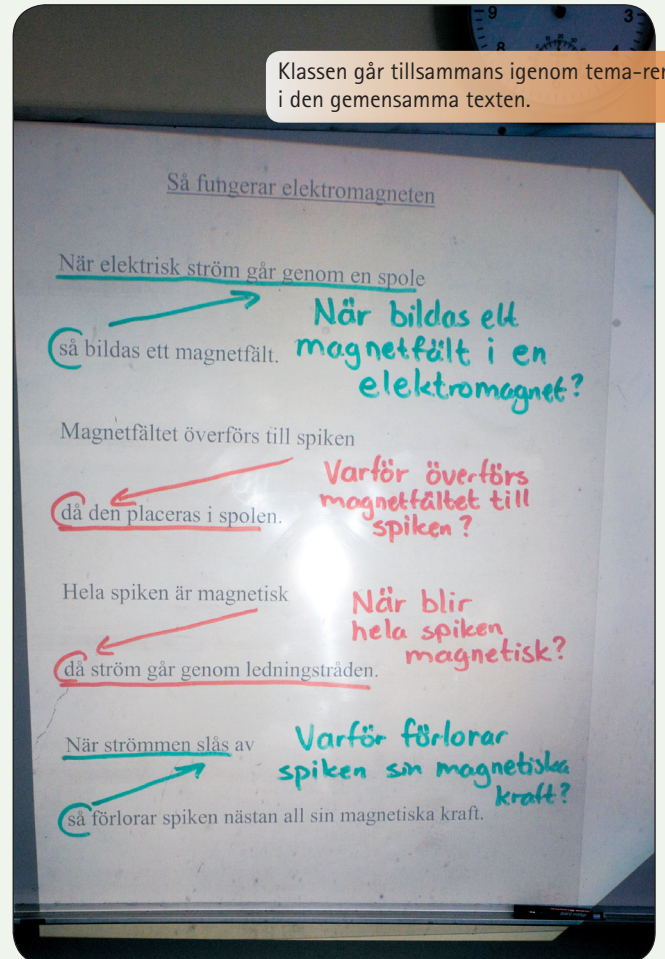 9
3
8
4
Klassen går tillsammans igenom tema-
i den gemensamma texten.
Så fungerar elektromagneten
När elektrisk ström går genom en spole
så bildas ett magnetfält.
När bildas ett
magnetfält i en
elektromagnet?
Magnetfältet överförs till spiken
då den placeras i spolen.
Varför överförs
magnetfältet till
spiken?
Hela spiken är magnetisk
då ström går genom ledningstråden.
När blir
hela spiken
magnetisk?
När strömmen slås av
så förlorar spiken nästan all sin magnetiska kraft.
Varför förlorar
spiken sin magnetiska
kraft?